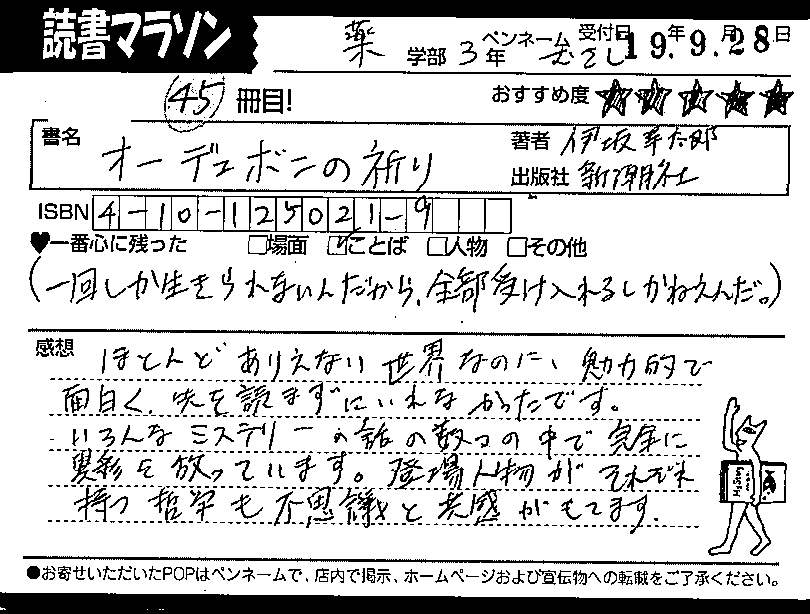 読書マラソン
薬 学部 3年 ペンネーム むさし 受付日 19年.9月.28日
45 冊目! おすすめ度 ★★★★★
書名 オーデュボンの祈り 著者 伊坂幸太郎
出版社 新潮社
ISBN 4-10-125021-9
♥一番心に残った □場面 ☑ことば □人物 □その他
(一回しか生きられないんだから、全部受け入れるしかねえんだ。)
感想 ほとんどありえない世界なのに、魅力的で
面白く、先を読まずにいれなかったです。
いろんなミステリーの話の数々の中で完全に
異彩を放っています。登場人物がそれぞれ
持つ哲学も不思議と共感がもてます.
●お寄せいただいたPOPはペンネームで、店内で掲示、ホームページおよび宣伝物への転載をご了承ください。